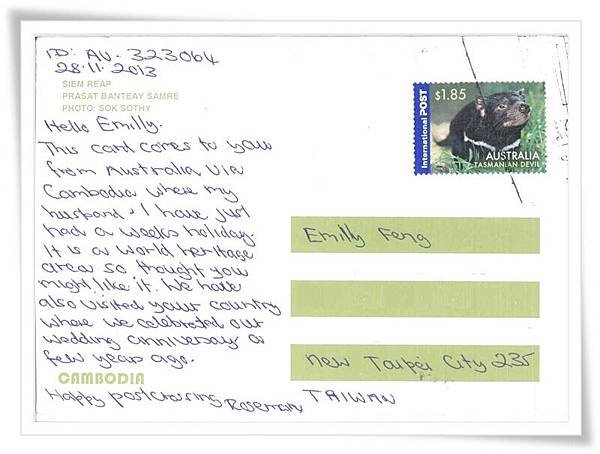 ID: AU-323064
28.11.2013
SIEM REAP
PRASAT BANTEAY SAMRE
PHOTO: SOK SOTHY
Hello Emilly.
This card comes to you
from Australia via
Cambodia where my
husband & I have just
had a weeks holiday.
It is a world heritage
area so thought you
might like it. We have
also visited your country
where we celebrated our
wedding anniversary a
few years ago.
CAMBODIA
Happy postcrossing
International POST
$1.85
AUSTRALIA
TASMANIAN DEVIL
Emilly Feng
New Taipei City 235
TAIWAN